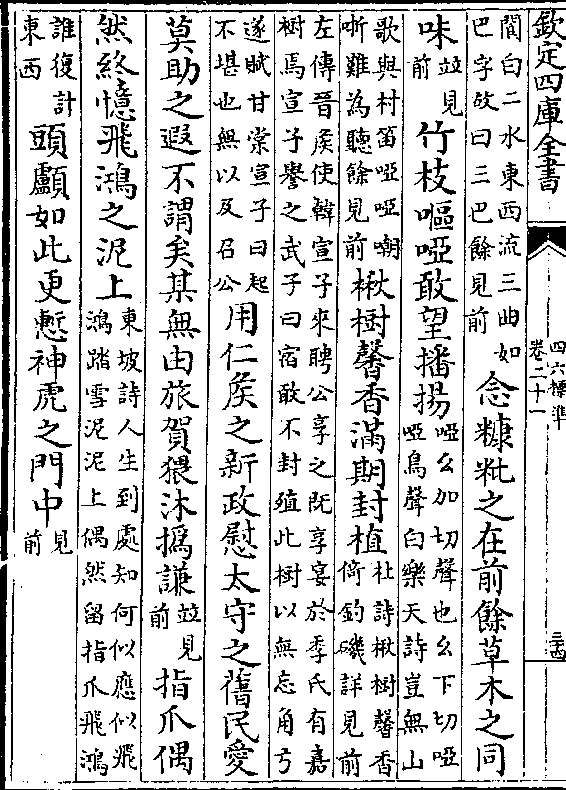 欽定四庫全書
四六標準
卷二十一
三十四
閬白二水東西流三曲如
巴字故曰三巴餘見前
念糠粃之在前餘草木之同
味
並見
前
竹枝嘔啞敢望播揚
啞幺加切聲也幺下切啞
啞鳥聲白樂天詩豈無山
歌與村笛啞啞嘲
哳難為聽餘見前
楸樹馨香滿期封植
杜詩楸樹馨香
倚釣磯詳見前
左傳晉矦使韓宣子來聘公享之既享宴於季氏有嘉
樹焉宣子譽之武子曰宿敢不封殖此樹以無忘角弓
遂賦甘棠宣子曰起
不堪也無以及召公
用仁矦之新政慰太守之舊民愛
莫助之遐不謂矣某無由旅賀猥沐撝謙
並見
前
指爪偶
然終憶飛鴻之泥上
東坡詩人生到處知何似應似飛
鴻踏雪泥泥上偶然留指爪飛鴻
誰復計
東西
頭顱如此更慙神虎之門中
見
前